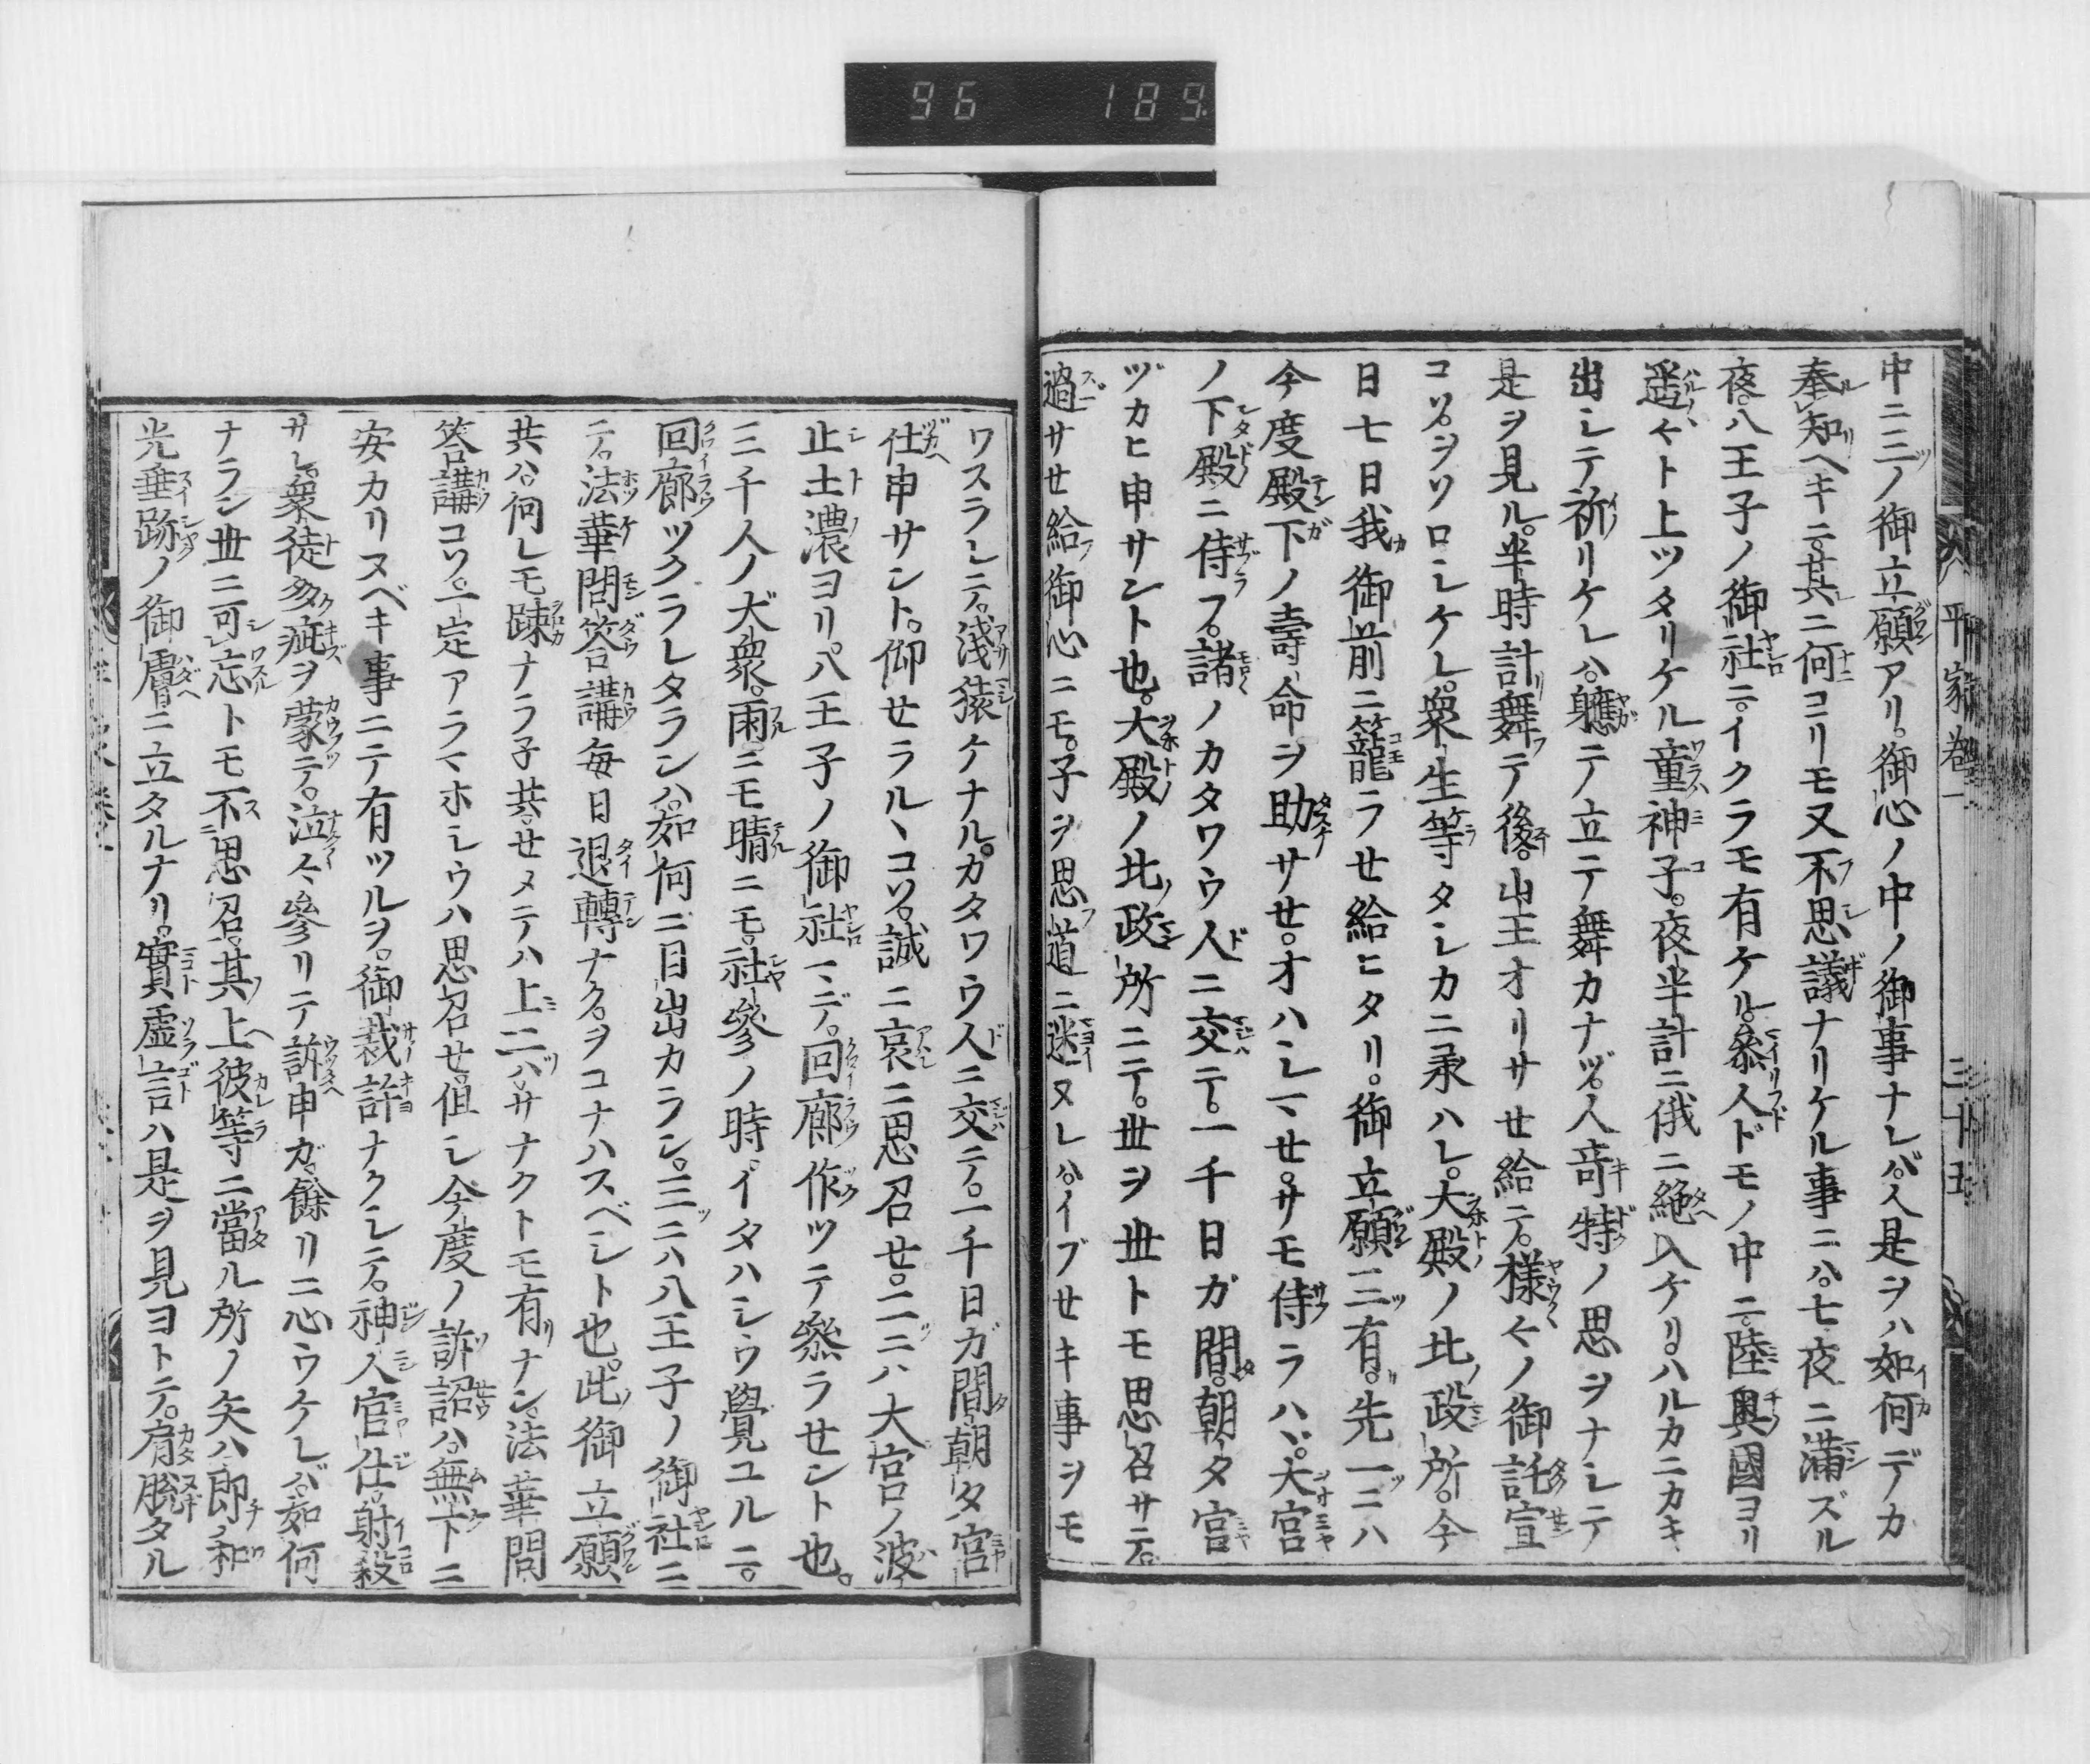 96 189
平家巻一 三十五
中ニ三ノ御立願アリ。御心ノ中ノ御事ナレバ。人是ヲハ如何デカ
奉知ヘキニ。其ニ何コリモ又不思議ナリケル事ニハ。七夜ニ満ズル
夜。八王子ノ御社ニ。イクラモ有ケル。參人ドモノ中ニ。陸奧國ヨリ
遥々ト上ツタリケル童神子。夜半計ニ俄ニ絶入ケリ。ハルカニカキ
出シテ祈リケレハ。軈テ立テ舞カナヅ。人竒特ノ思ヲナシテ
是ヲ見ル。半時計舞テ後。山王オリサせ給テ。様々ノ御託宣
コソ。ヲソロシケレ。衆生等タシカニ承ハレ。大殿ノ北政所。今
日七日我御前ニ籠ラせ給ヒタリ。御立願三有。先一ニハ
今度殿下ノ壽命ヲ助サせ。オハシマせ。サモ侍ラハヽ。大宮
ノ下殿ニ侍フ。諸ノカタワウ人ニ交テ。一千日ガ間。朝タ宮
ヅカヒ申サント也。大殿ノ北政所ニテ。世ヲ世トモ思召サテ。
過サせ給御心ニモ。子ヲ思道ニ迷ヌレハ。イブせキ事ヲモ
ワスラレテ。淺猿ケナル。カタワウ人ニ交テ。一千日ガ間朝タ宮
仕申サント。仰せラルヽコソ。誠ニ哀ニ思召せ。二ニハ大宮ノ波
止土濃ヨリ。八王子ノ御社マデ。回廊作ツテ參ラせント也。
三千人ノ大衆。雨ニモ晴ニモ。社參ノ時。イタハシウ覺ユルニ。
回廊ツクラレタランハ。如何ニ目出カラン。三ニハ八王子ノ御社ニ
テ。法華問答講毎日退轉ナク。ヲコナハスベシト也。此御立願
共ハ。何レモ疎ナラ子共。せメテハ上二ハ。サナクトモ有ナン。法華問
答講コソ。一定アラマホシウハ思召せ。但シ今度ノ訴詔ハ。無下ニ
安カリヌベキ事ニテ有ツルヲ。御裁許ナクシテ。神人官仕。射殺
サレ。衆徒多疵ヲ蒙テ。泣々參リテ訴申ガ。餘リニ心ウケレバ。如何
ナラン世ニ可忘トモ不思召。其上彼等ニ當ル所ノ矢ハ。即和
光垂跡ノ御膚ニ立タルナリ。實虚言ハ是ヲ見ヨトテ。肩脱タル